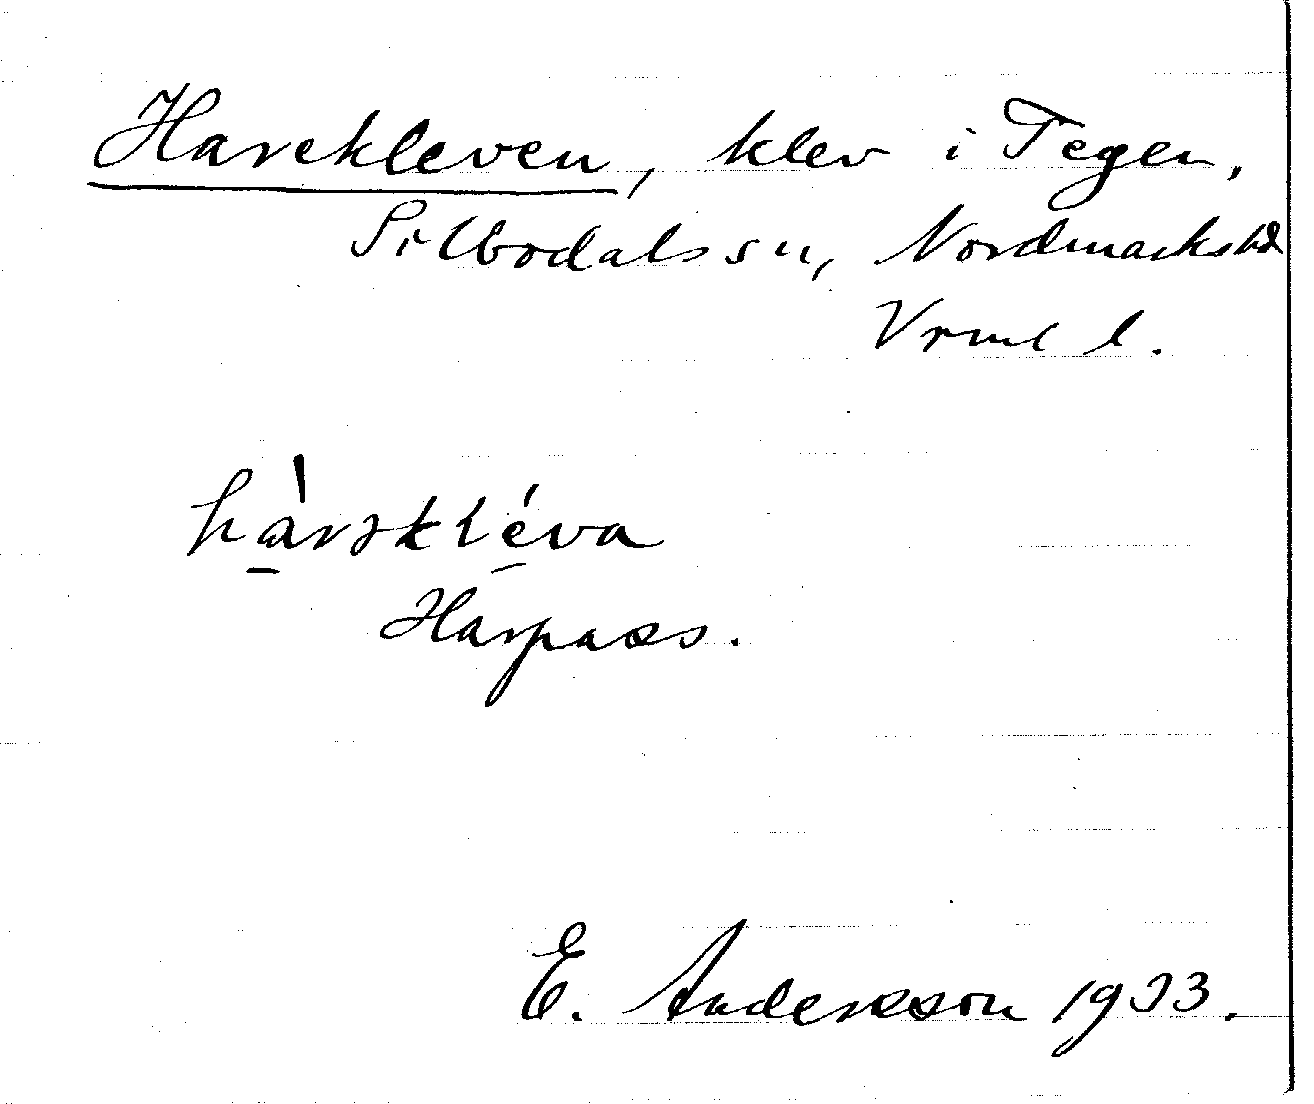 Harekleven, klev i Tegen,
Silbodals sn, Nordmarks hd
Vrml l.
hàrəkléva
Harpass.
E. Andersson 1933.